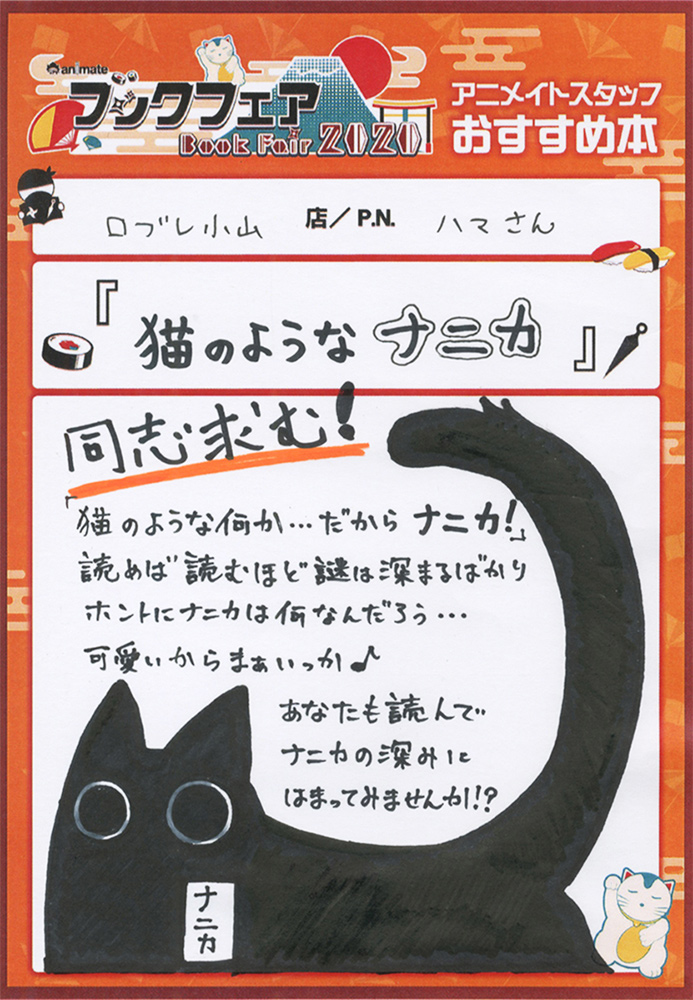 animate
ブックフェア
Book Fair 2020
アニメイトスタッフ
おすすめ本
ロブレ小山 店/P.N. ハマさん
『猫のようなナニカ』
同志求む!
「猫のような何か…だからナニカ!」
読めば読むほど謎は深まるばかり
ホントにナニカは何なんだろう…
可愛いからまぁいっか♪
あなたも読んで
ナニカの深みに
はまってみませんか!?
ナニカ